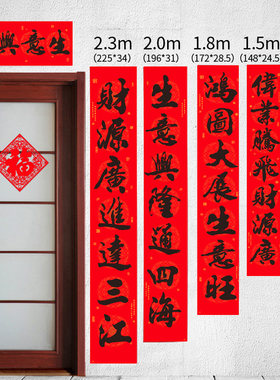 興意生
2.3m
(225*34)
2.0m
(196*31)
1.8m
(172*28.5)
1.5m
(148*24.5
福
財源廣進達三江
生意興隆通四海
鴻圖大展生意旺
偉業騰飛財源廣